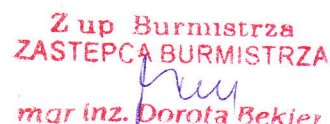 Z up Burmistrza
ZASTĘPCA BURMISTRZA
mgr inż. Dorota Bekier